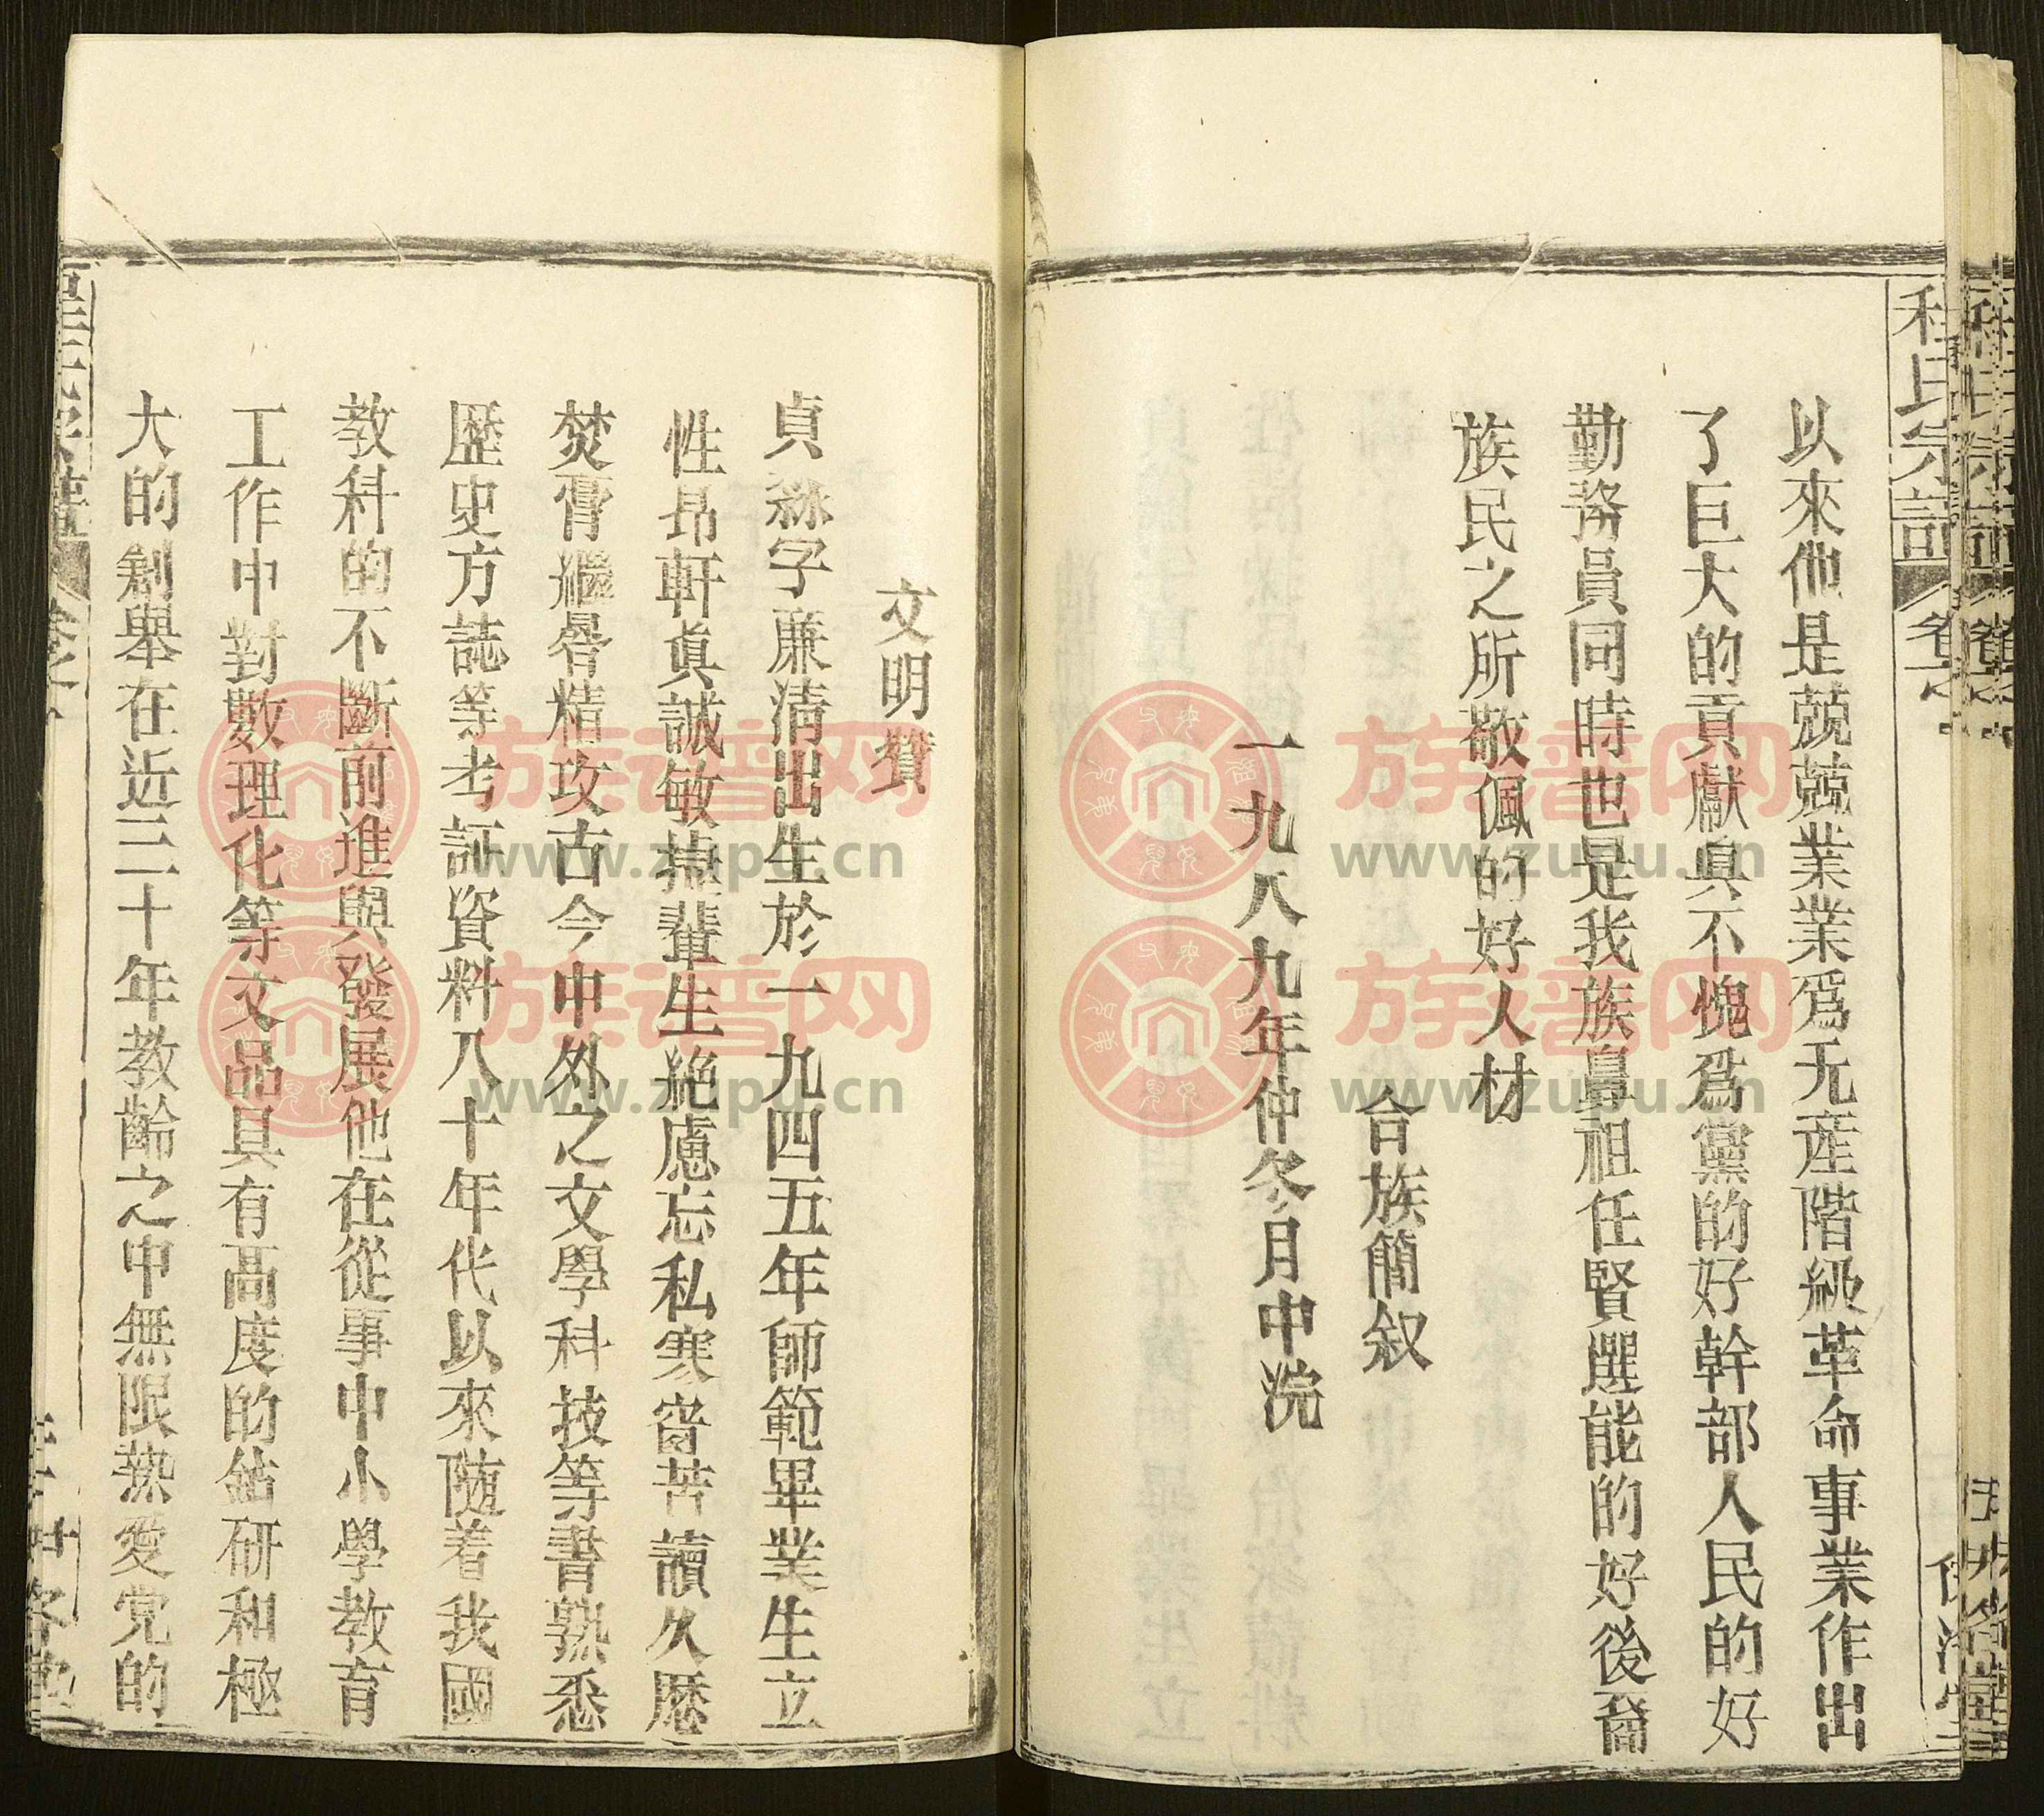 程氏宗譜 卷之
以來他是兢兢業業爲无産階級革命事業作出
了巨大的貢獻真不愧爲黨的好幹部人民的好
勤務員同時也是我族鼻祖任賢選能的好後裔
族民之所敬佩的好人材
合族簡叙
一九八九年仲冬月中浣
文明贊
貞霖字廉清出生於一九四五年師範畢業生立
性昂軒真誠敏捷輩生絶慮忘私寒窗苦讀久歷
焚膏繼晷精攻古今中外之文學科技等書熟悉
歷史方誌等考証資料八十年代以來随着我國
教科的不斷前進與發展他在從事中小學教育
工作中對數理化等文品具有高度的鈷研和極
大的創舉在近三十年教齡之中無限热愛党的
族谱网
www.zupu.cn
族谱网
www.zupu.cn
族谱网
www.zupu.cn
族谱网
www.zupu.cn